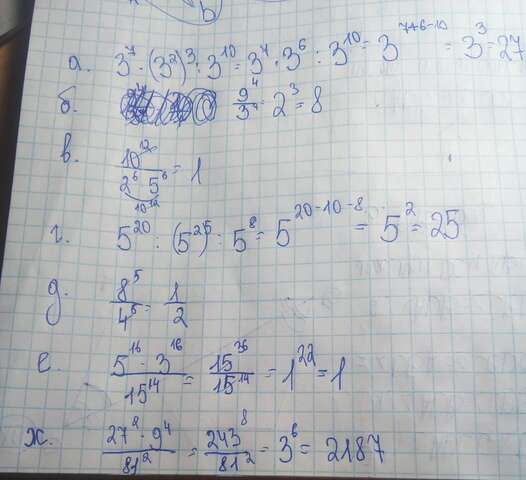 а. 3⁷ · (3²)³ : 3¹⁰ = 3⁷ · 3⁶ : 3¹⁰ = 3⁷⁺⁶⁻¹⁰ = 3³ = 27
б. 9⁴/3⁴ = 2³ = 8
в. 10¹²/(2⁶ 5⁶) = 1
10¹²
г. 5²⁰ : (5²)⁵ : 5⁸ = 5²⁰⁻¹⁰⁻⁸ = 5² = 25
д. 8⁵/4⁵ = 1/2
е. (5¹⁶ · 3¹⁶)/15¹⁴ = 15³⁶/15¹⁴ = 1²² = 1
ж. (27² · 9⁴)/81² = 243⁸/81² = 3⁶ = 2187